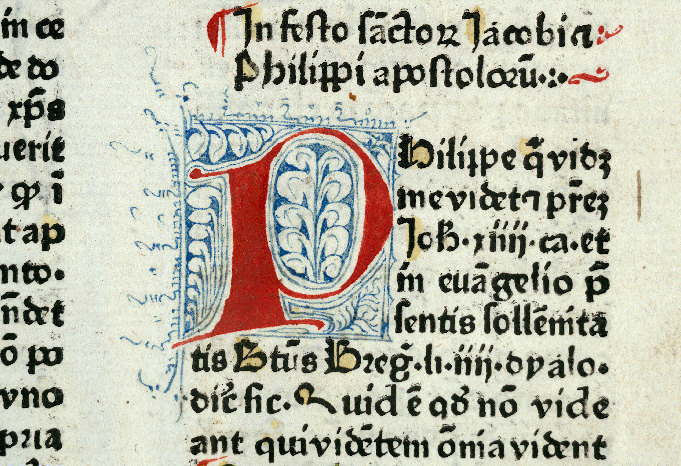 im ce
de do
xp̄s
uerit
qꝫ ī
tap
nto.
n̄det
ō po
vno
pria
In festo sāctoꝝ Jacobi ⁊
Philippi apostoloꝝū.
Philippe q̄ vidꝫ
me videt ⁊ pr̄eꝫ
Joh̄.xiiij.ca.et
in euāgelio p̄
sentis sollēnita
tis Stūs Greḡ.li.iiij.dyalo.
dic̄ sic. Quid ē qđ nō vide
ant qui vidētem ōnia vident